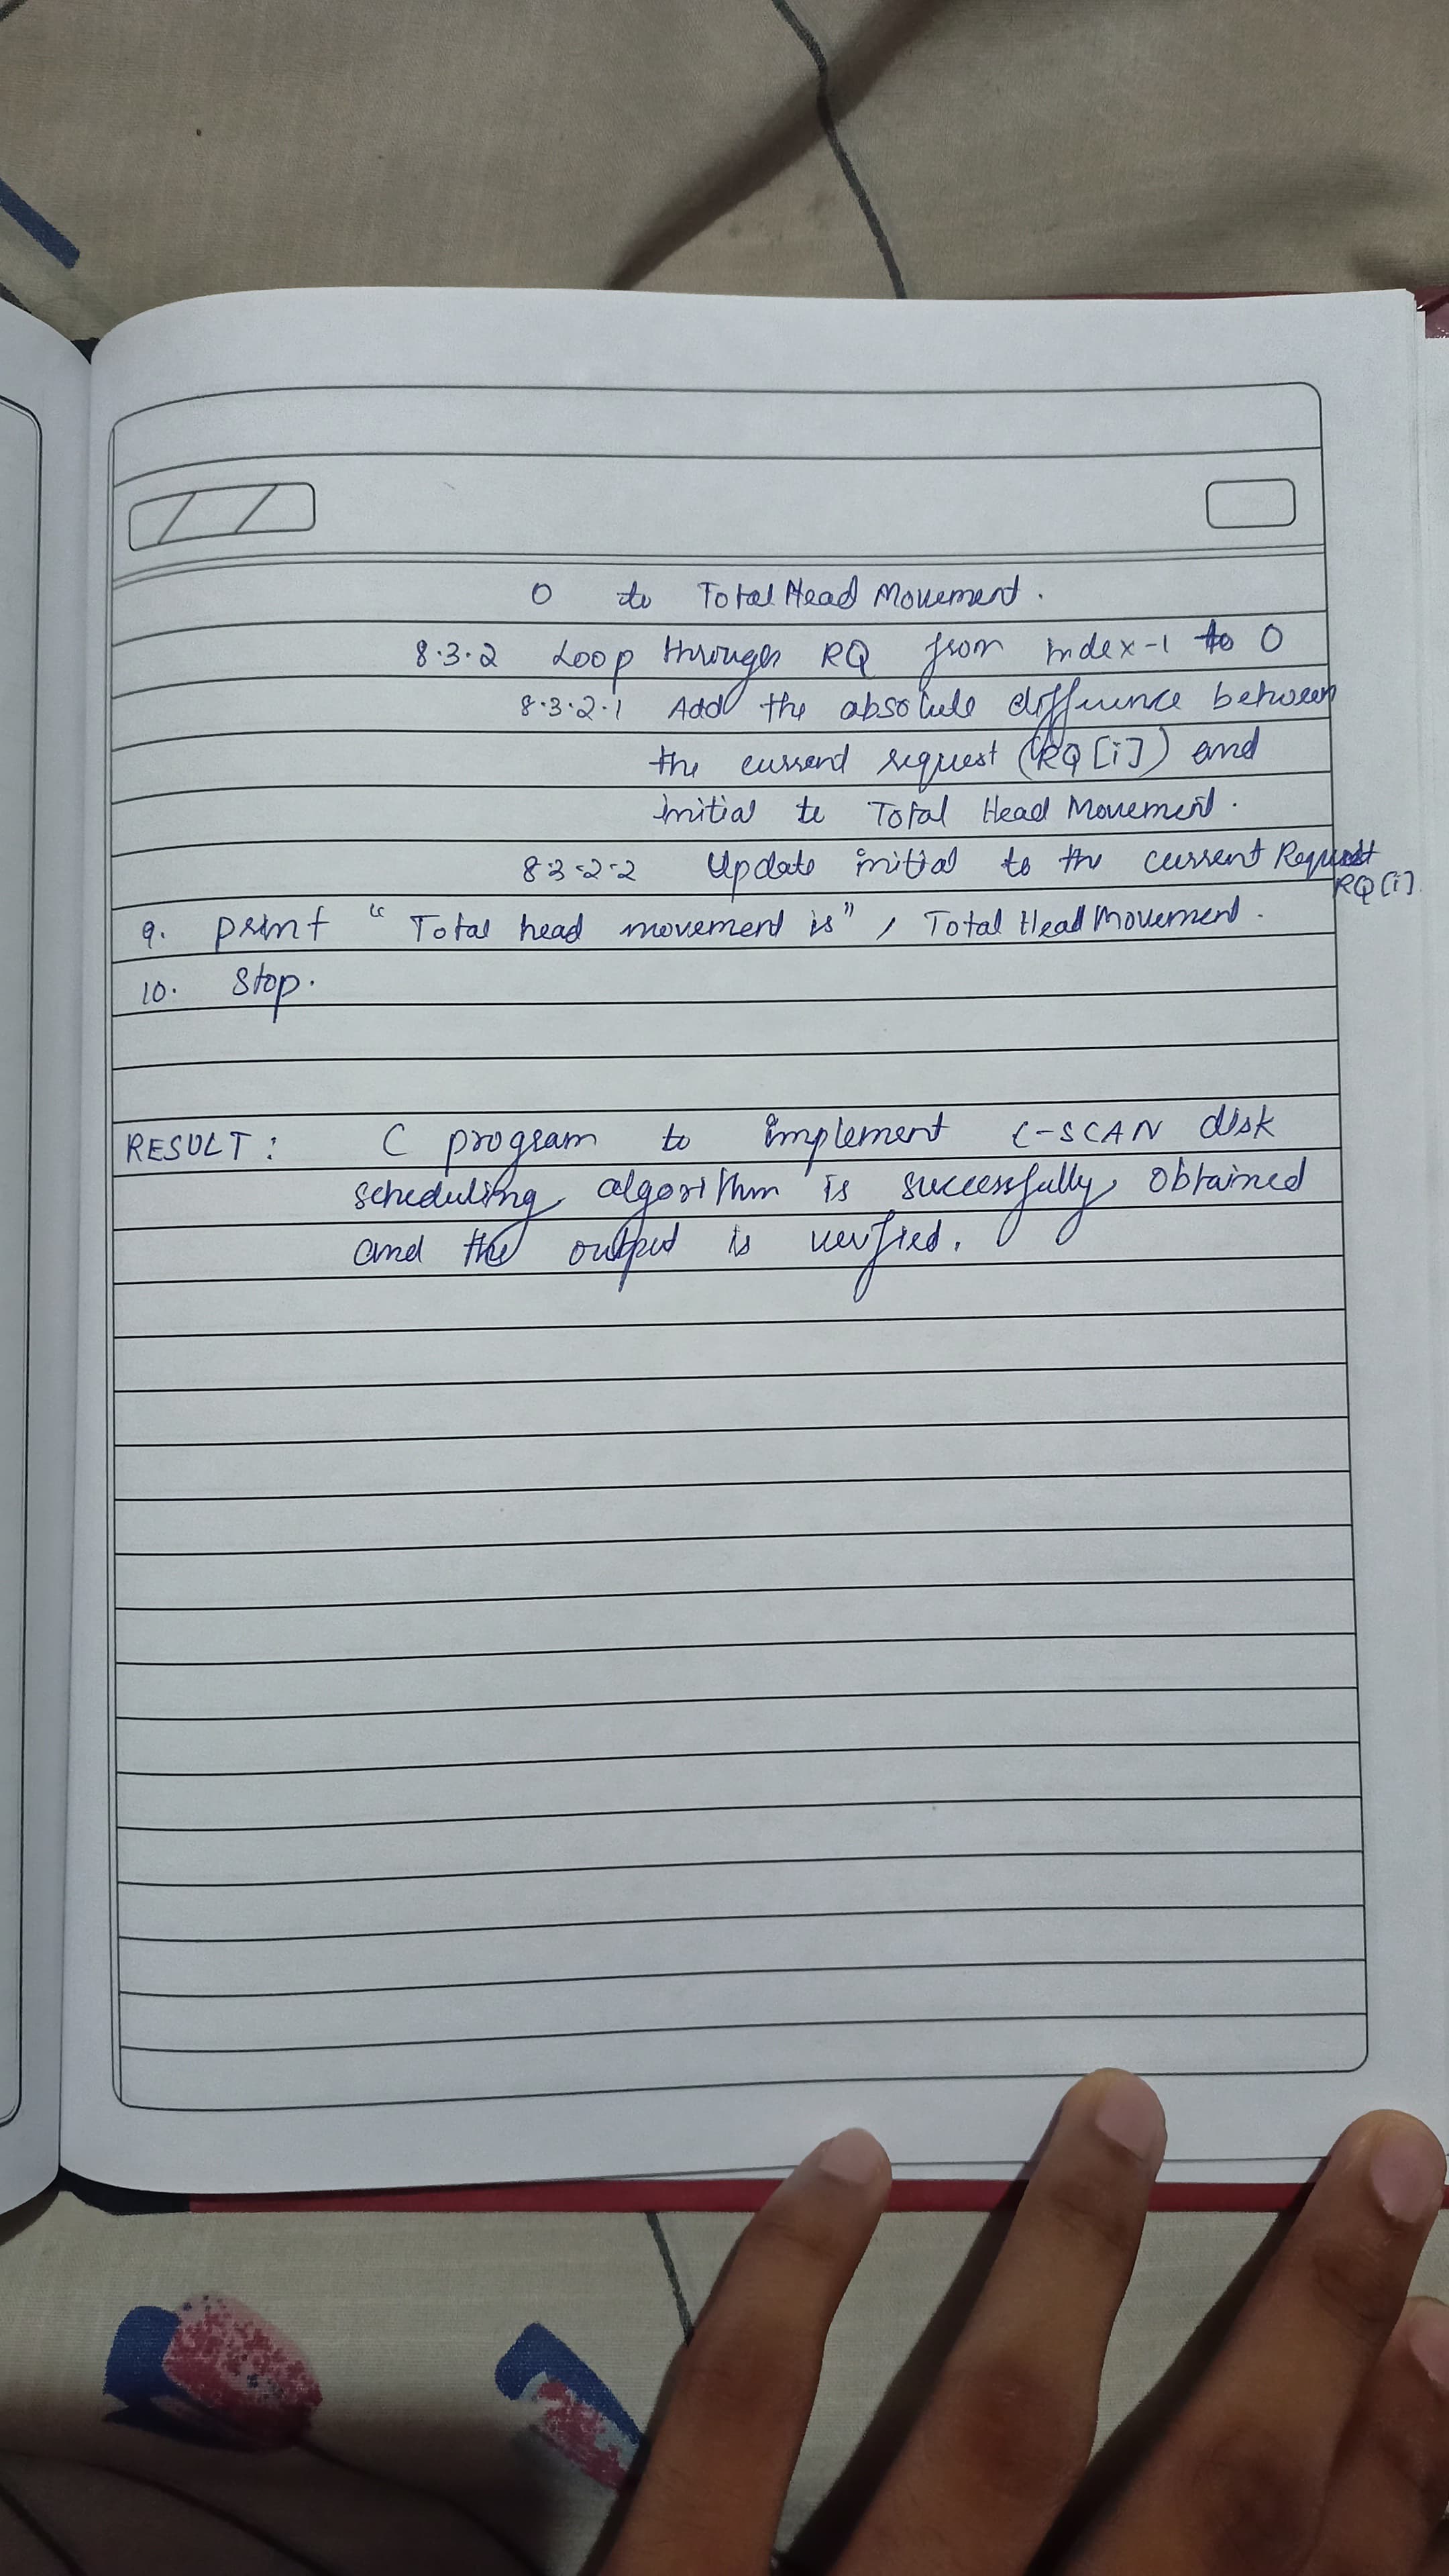 0 to Total Head Movement.
8.3.2 Loop through RQ from index-1 to 0
8.3.2.1 Add the absolute difference between
the current request (RQ[i]) and
initial to Total Head Movement.
8.3.2.2 Update initial to the current Request
RQ[i]
9. print "Total head movement is", Total Head Movement.
10. Stop.
RESULT: C program to implement C-SCAN disk
scheduling algorithm is successfully obtained
and the output is verified.